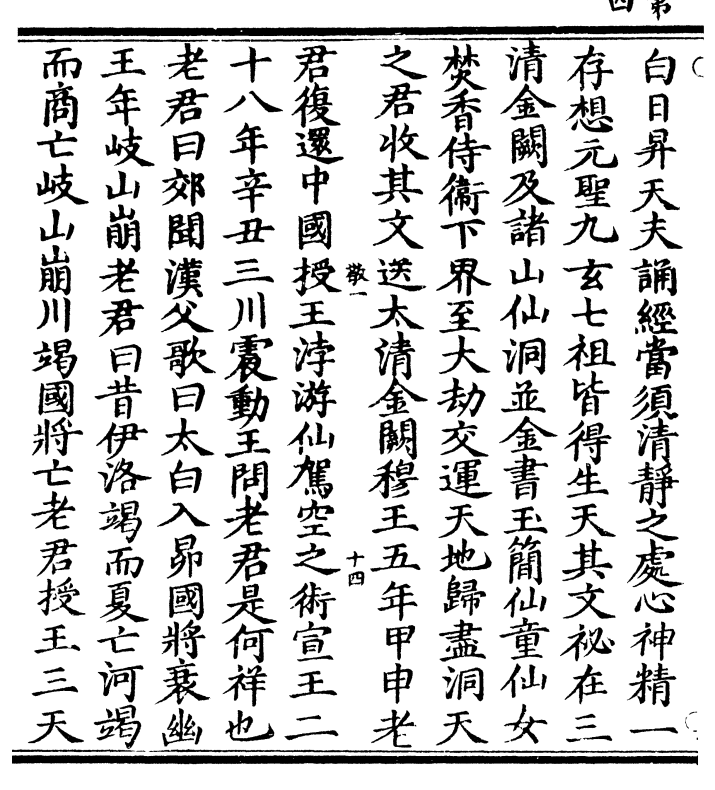 白日昇天夫誦經當須清靜之處心神精一
存想元聖九玄七祖皆得生天其文祕在三
清金闕及諸山仙洞並金書玉簡仙童仙女
焚香侍衞下界至大劫交運天地歸盡洞天
之君收其文送太清金闕穆王五年甲申老
敬一
十四
君復還中國授王浡游仙駕空之術宣王二
十八年辛丑三川震動王問老君是何祥也
老君曰郊聞漢父歌曰太白入昴國將衰幽
王年岐山崩老君曰昔伊洛竭而夏亡河竭
而商亡岐山崩川竭國將亡老君授王三天